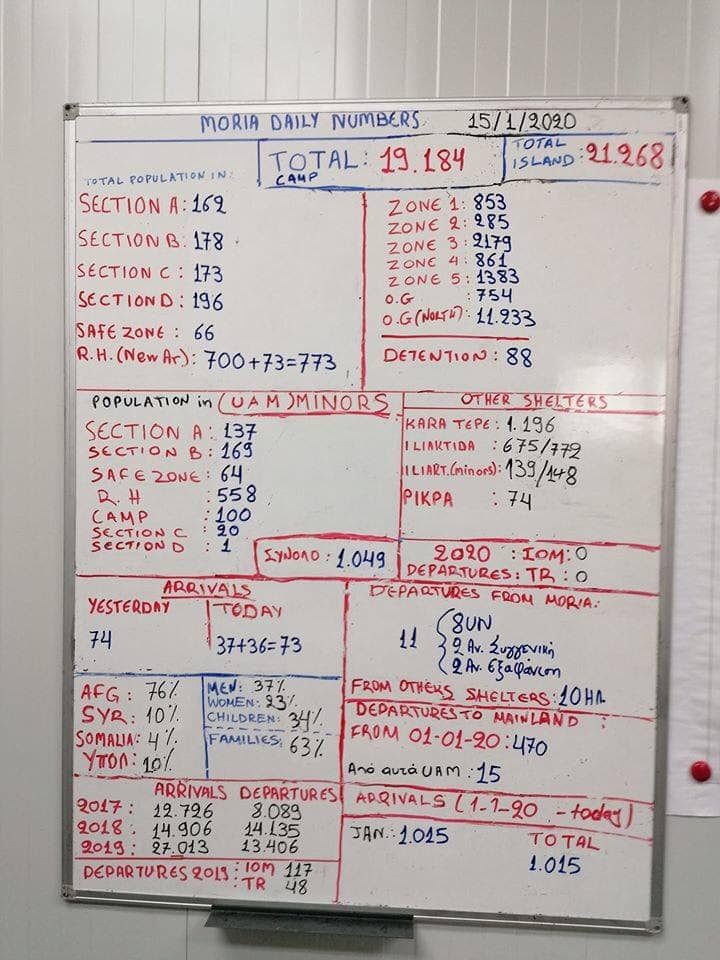 MORIA DAILY NUMBERS 15/1/2020
TOTAL CAMP: 19.184
TOTAL ISLAND: 21.268
TOTAL POPULATION IN:
SECTION A: 162
SECTION B: 178
SECTION C: 173
SECTION D: 196
SAFE ZONE: 66
R.H.(New Ar): 700+73=773
ZONE 1: 853
ZONE 2: 285
ZONE 3: 2179
ZONE 4: 861
ZONE 5: 1383
O.G : 754
O.G (NORTH): 11.233
DETENTION: 88
POPULATION in (UAM) MINORS
SECTION A: 137
SECTION B: 169
SAFE ZONE: 64
R.H : 558
CAMP : 100
SECTION C : 20
SECTION D : 1
ΣΥΝΟΛΟ: 1.049
OTHER SHELTERS
KARA TEPE: 1.196
ILIAKTIDA : 675/772
ILIAKT.(minors): 139/148
PIKPA : 74
2020 : IOM: 0
DEPARTURES: TR : 0
ARRIVALS
YESTERDAY
74
TODAY
37+36=73
DEPARTURES FROM MORIA:
11
8UN
2 Αν. Συγγενική
2 Αν. Εξαφάνιση
FROM OTHERS SHELTERS: 10 ΗΛ
AFG: 76%
SYR: 10%
SOMALIA: 4%
ΥΠΟΛ: 10%
MEN: 37%
WOMEN: 23%
CHILDREN: 34%
FAMILIES: 63%
DEPARTURES TO MAINLAND:
FROM 01-01-20: 470
Από αυτά UAM: 15
ARRIVALS DEPARTURES
2017: 12.726 8.089
2018: 14.906 14.135
2019: 27.013 13.406
DEPARTURES 2019: IOM 117
: TR 48
ARRIVALS (1-1-20 - today)
JAN.: 1.015
TOTAL
1.015